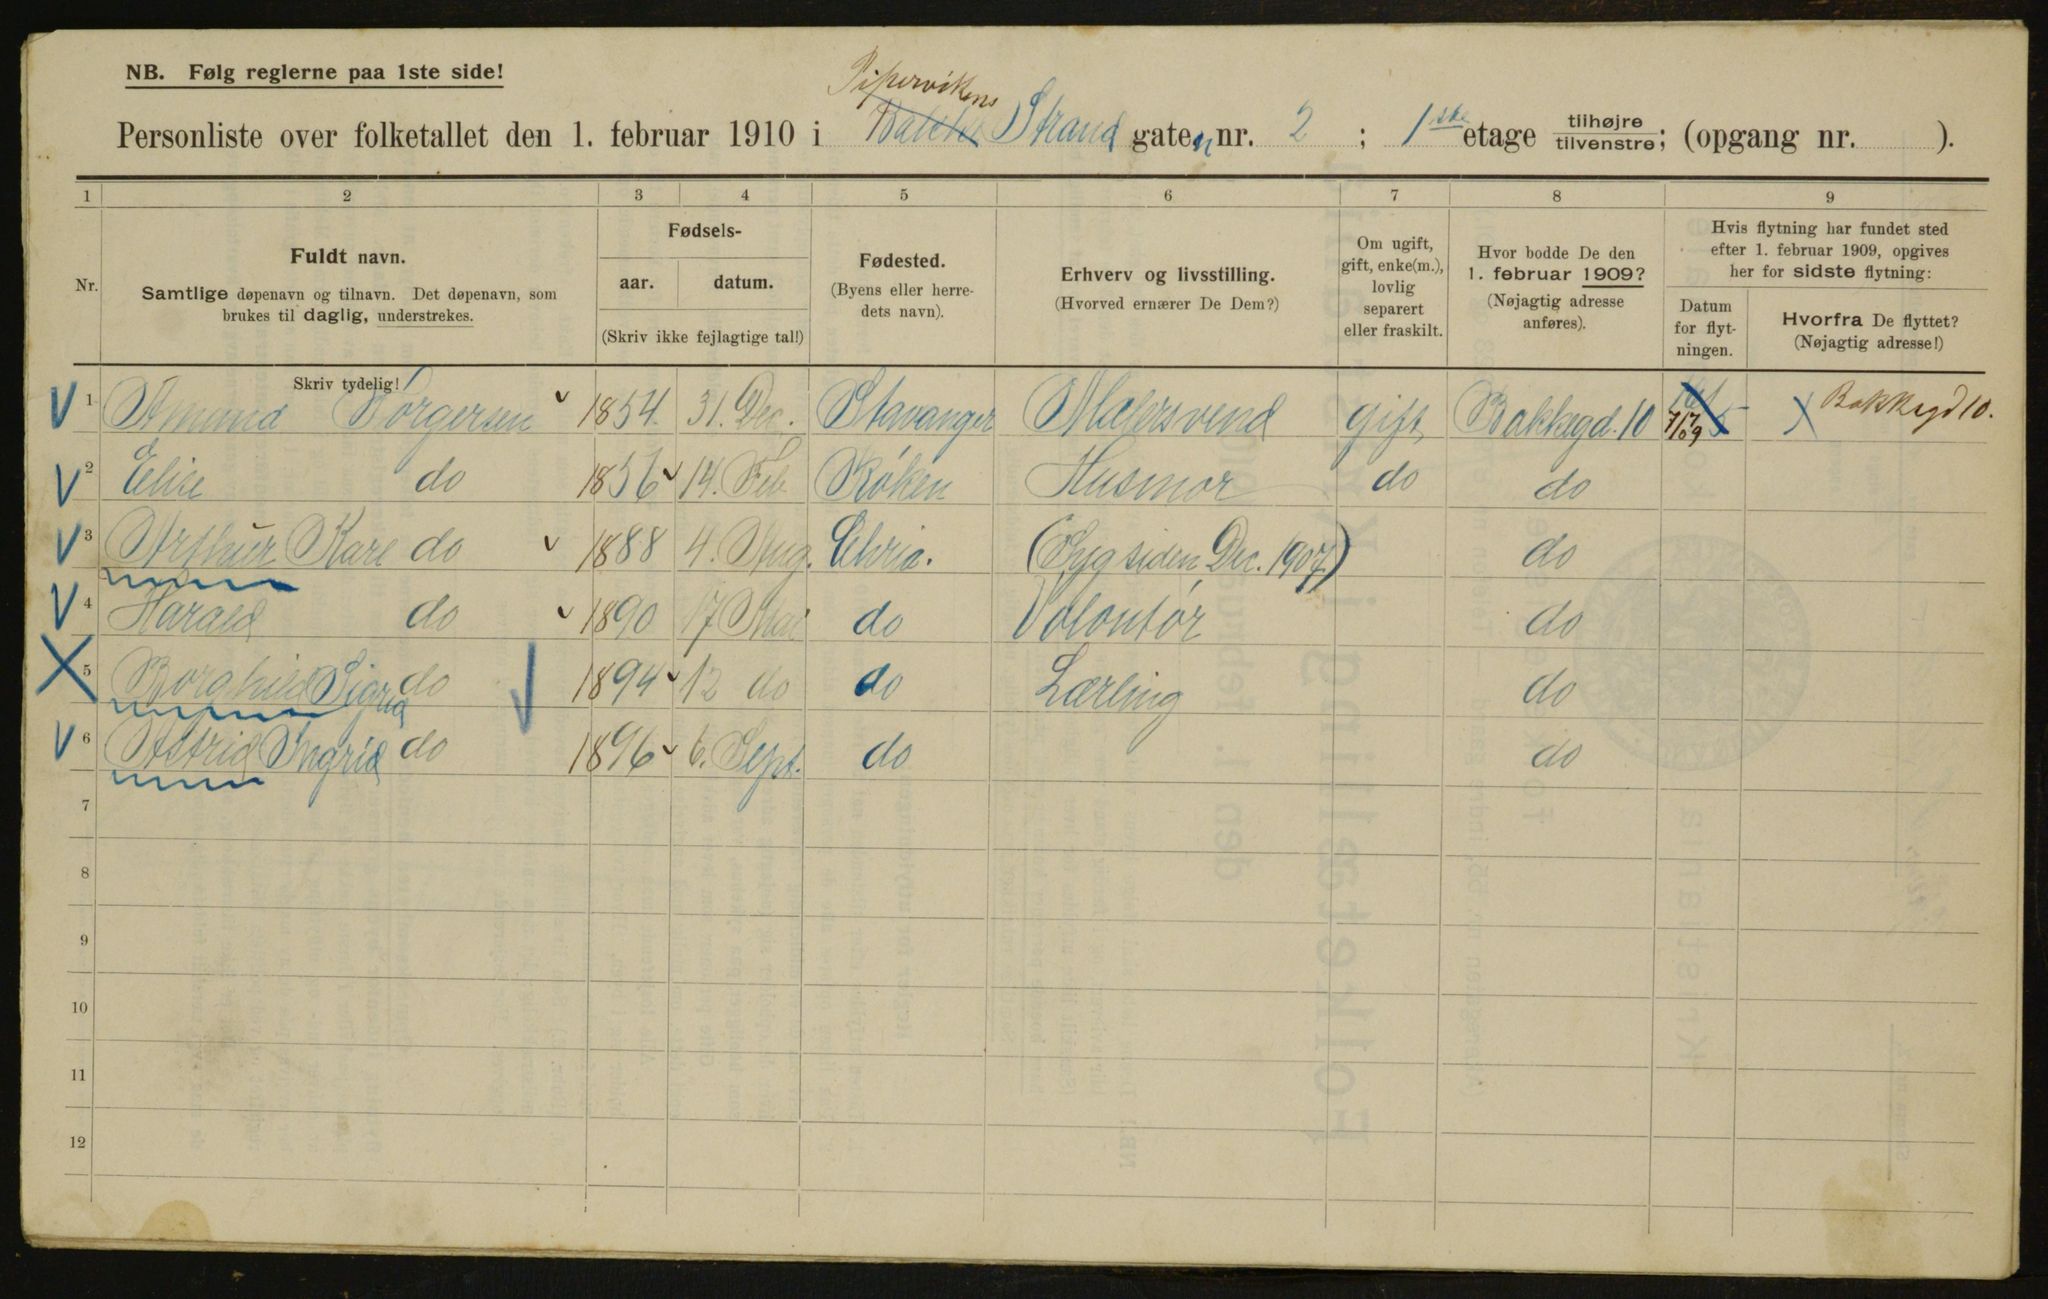 NB. Følg reglerne paa 1ste side!
Pipervikens
Personliste over folketallet den 1. februar 1910 i Strand gaten nr. 2 ; 1ste etage tilhøjre / tilvenstre; (opgang nr. ).
1 2 3 4 5 6 7 8 9
Nr.
Fuldt navn.
Samtlige døpenavn og tilnavn. Det døpenavn, som
brukes til daglig, understrekes.
Skriv tydelig!
Fødsels-
aar. datum.
(Skriv ikke fejlagtige tal!)
Fødested.
(Byens eller herre-
dets navn).
Erhverv og livsstilling.
(Hvorved ernærer De Dem?)
Om ugift,
gift, enke(m.),
lovlig
separert
eller fraskilt.
Hvor bodde De den
1. februar 1909?
(Nøjagtig adresse
anføres).
Hvis flytning har fundet sted
efter 1. februar 1909, opgives
her for sidste flytning:
Datum
for flyt-
ningen.
Hvorfra De flyttet?
(Nøjagtig adresse!)
1 Amund Børgersen 1854 31. Dec. Stavanger Malersvend gift Bakkegd. 10 Bakkegd 10.
2 Elise do 1856 14. Feb Røken Husmor do do
3 Arthur Kare do 1888 4. Aug. Chria. (Syg siden Dec. 1907) do
4 Harald do 1890 17 Mai do Volontør do
5 Borghild Sigrid do 1894 12 do do Lærling do
6 Astrid Ingrid do 1896 6. Sept. do do
7
8
9
10
11
12